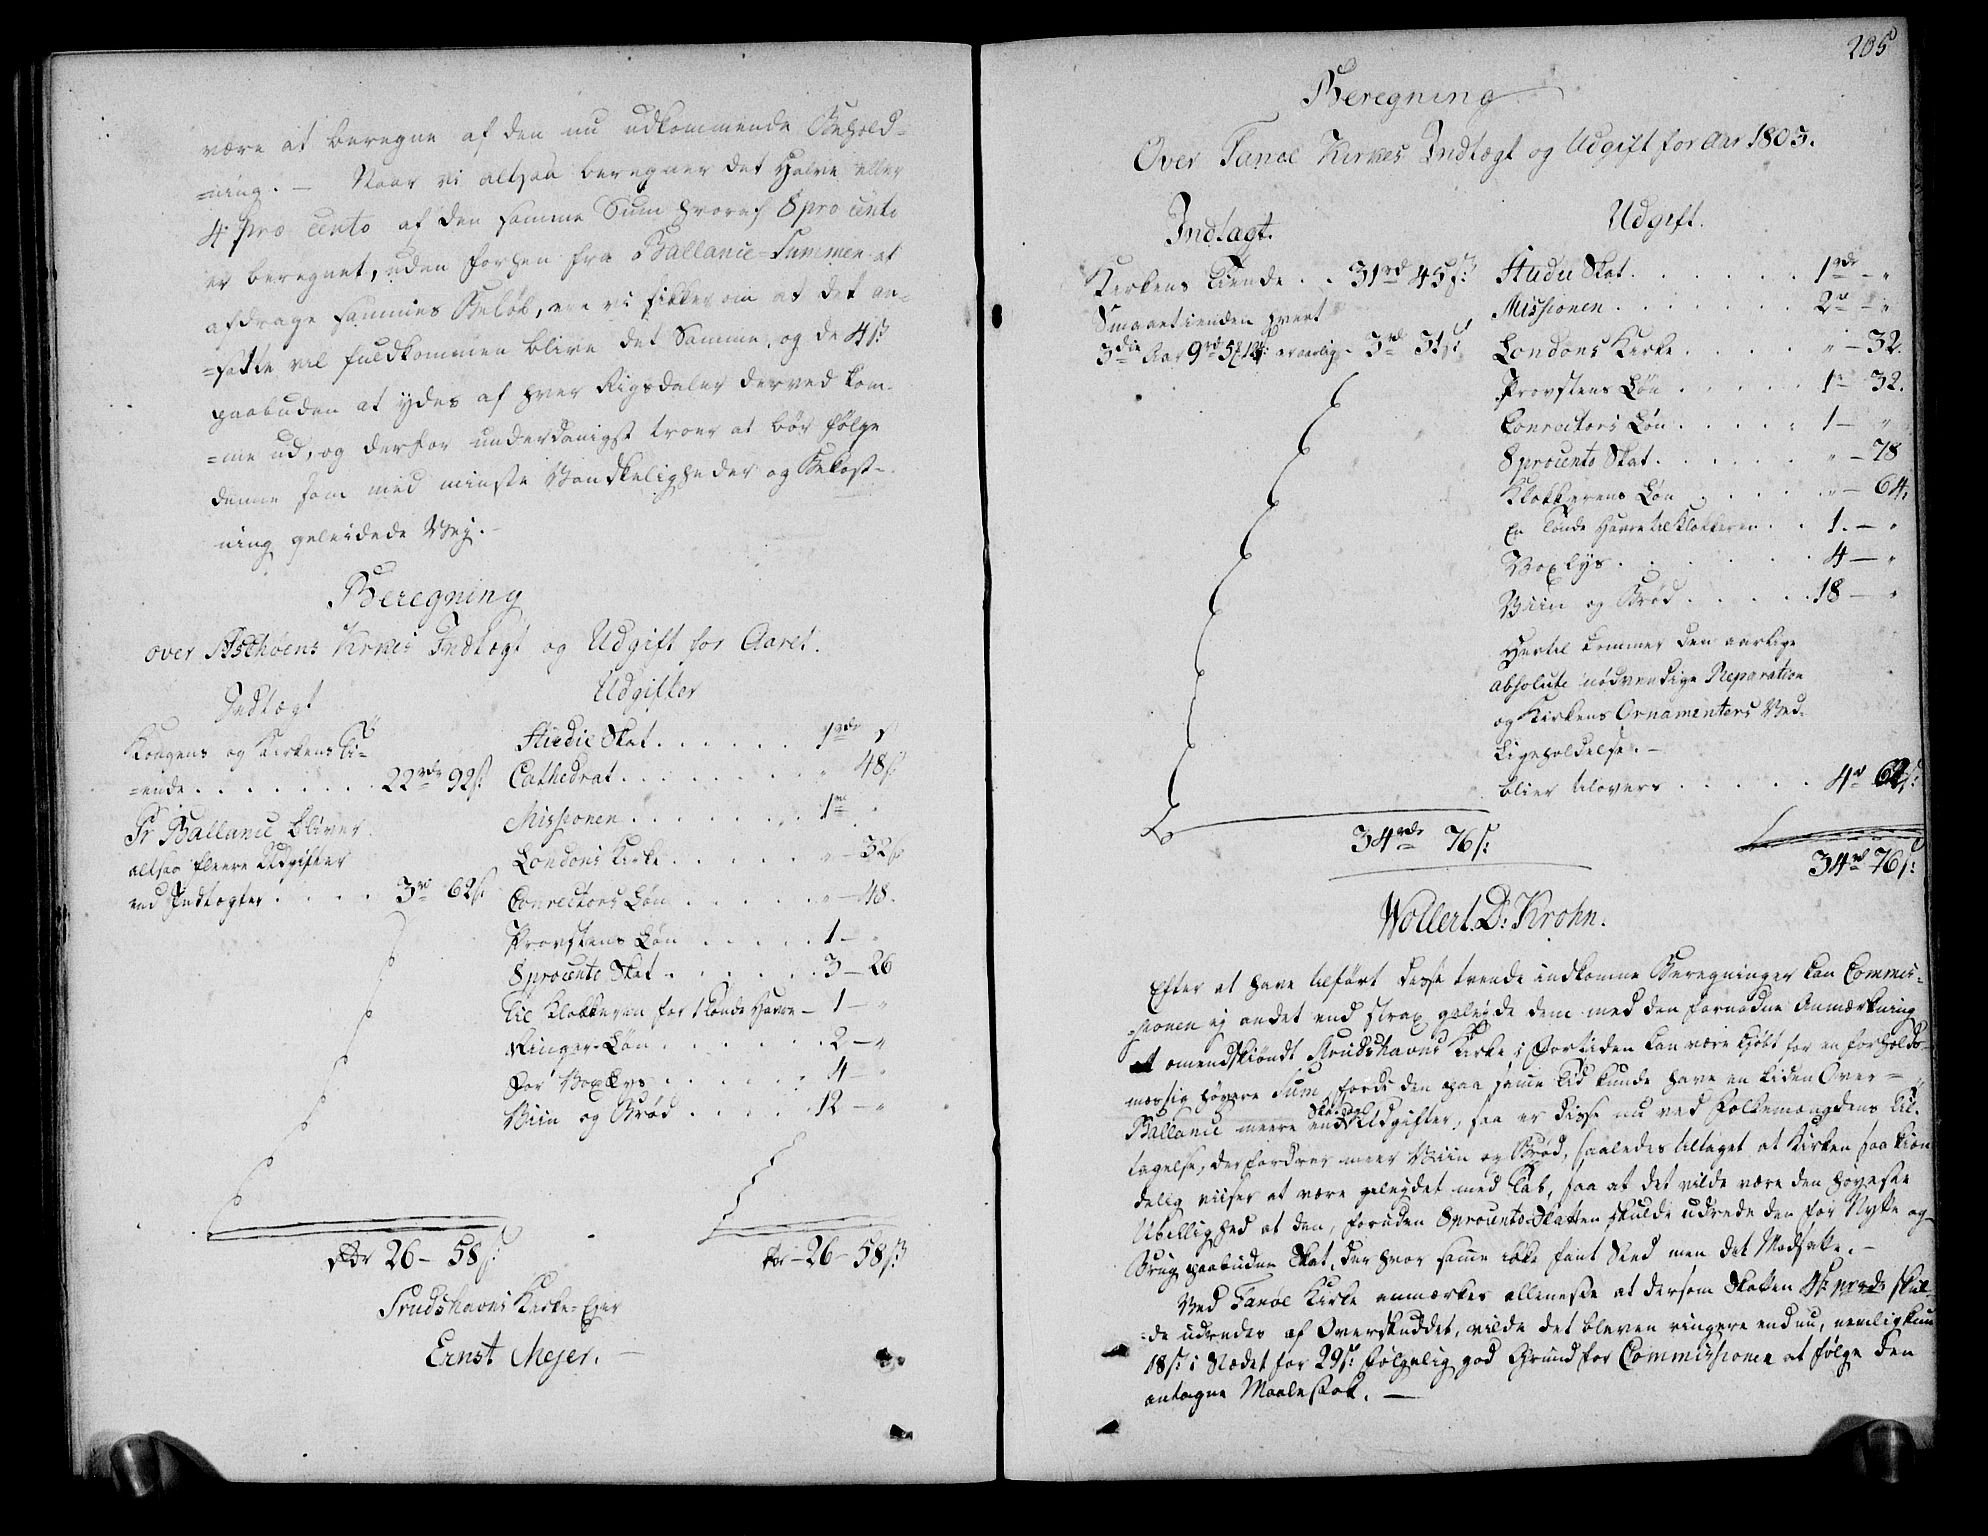 være at beregne af den nu udkommende Behold-
=ning. - Naar vi altsaa beregner det Halve eller
4 pro cento af den samme Sum hvoraf 8 pro cento
er beregnet, uden forhen fra Ballance-Summen at
afdrage sammes Beløb, ere vi sikker om at det an-
=satte vil fuldkommen blive det Samme, og de 4 s:
paabuden at ydes af hver Rigsdaler derved kom-
=me ud, og derfor underdanigst troer at bør følge
denne som med minste Vandskeligheder og Bekost-
ning geleidede Vej. -
Beregning
over Kirkes Indtægt og Udgift for Aaret.
Indtægt
Kongens og Kirkens Ti-
=ende . . . . . . . . 22 rdr 92 s.
Pr Ballance bliver
altsaa fleere Udgifter
end Indtægter . . . . 3 rd 62 s.
Udgifter
Studie Skat . . . . . 1 rdr s
Cathedrat . . . . . . . " 48 s
Missionen . . . . . . . 1 rd "
Londons Kirke . . . . . " - 32 s
Conrectors Løn . . . . . " - 48.
Provstens Løn . . . . 1 - "
8 procento Skat . . . . . 3 - 26
Til Klokkeren for 1 Tønde Havre - 1 - "
Ringer-Løn . . . . . . 2 - "
For Voxlys . . . . . 4 - "
Viin og Brød . . . . . 12 - "
Rdr 26 - 58 s:
Rdr - 26 - 58 s
Trudshavns Kirke-Ejer
Ernst Mejer. -
205
Beregning
Over Tanøe Kirkes Indtægt og Udgift for Aar 1803.
Indtægt.
Kirkens Tiende . . 31 rd 45 s:
Smaaetienden hvert
3die Aar 9 rd er aarlig - 3 rd 31 s:
34 rdr 76 s:
Udgift.
Studii Skat . . . . . . 1 rdr - "
Missionen . . . . . . . 2 rd - "
Londons Kirke . . . . . " - 32.
Provstens Løn . . . . . 1 - 32.
Conrectors Løn . . . . . 1 - "
8 procento Skat . . . . . . " - 78
Klokkerens Løn . . . . . " - 64.
En Tønde Havre til Klokkeren . . 1. - "
Voxlys . . . . . . . 4 - "
Viin og Brød . . . . . 18 - "
Hertil kommer den aarlige
absolute nødvendige Reparation
og Kirkens Ornamenters Ved-
ligeholdelse. -
bliver tilovers . . . . . 4 rd 62 s:
34 rd 76 s:
Wollert D: Krohn.
Efter at have tilført disse tvende indkomne Beregninger kan Commis-
=sionen ej andet end strax geleyde dem med den fornødne Anmærkning
at omendskiøndt Trudshavns Kirke i Fortiden kan være kjøbt for en forholds-
mæssig høyere Sum, fordi den paa same Tid kunde have en liden Over-
Ballance meere end Udgifter, saa er disse nu ved Folkemængdens Til-
tagelse, der fordrer meer Viin og Brød, saaledes tiltaget at Kirken saa kien-
delig viiser at være geleydet med Tab, saa at det vilde være den høyeste
Ubillighed at den, foruden 8 procento Skatten skulde udrede den for Nytte og
Brug paabuden Skat, der hvor same ikke fant Sted men det Modsatte. -
Ved Tanøe Kirke anmærkes alleneste at dersom Skatten 4 s: pr rdr skul-
=de udredes af Overskuddet, vilde det bleven ringere endnu, nemlig kun
18 s: i Stedet for 29 s: følgelig god Grund for Commissionen at følge den
antagne Maalestok. -